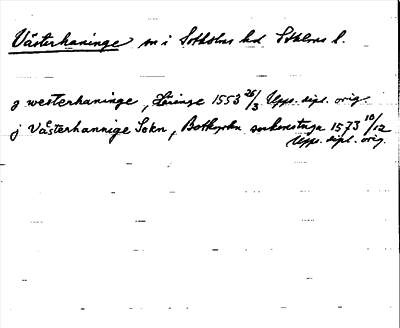 Västerhaninge sn i Sotholms hd Sthlms l.
g westerhaninge, Häringe 1553 26/3 Upps. dipl. orig.
j Våsterhannige Sokn, Botkyrka sockenstuga 1573 10/12
Upps. dipl. orig.